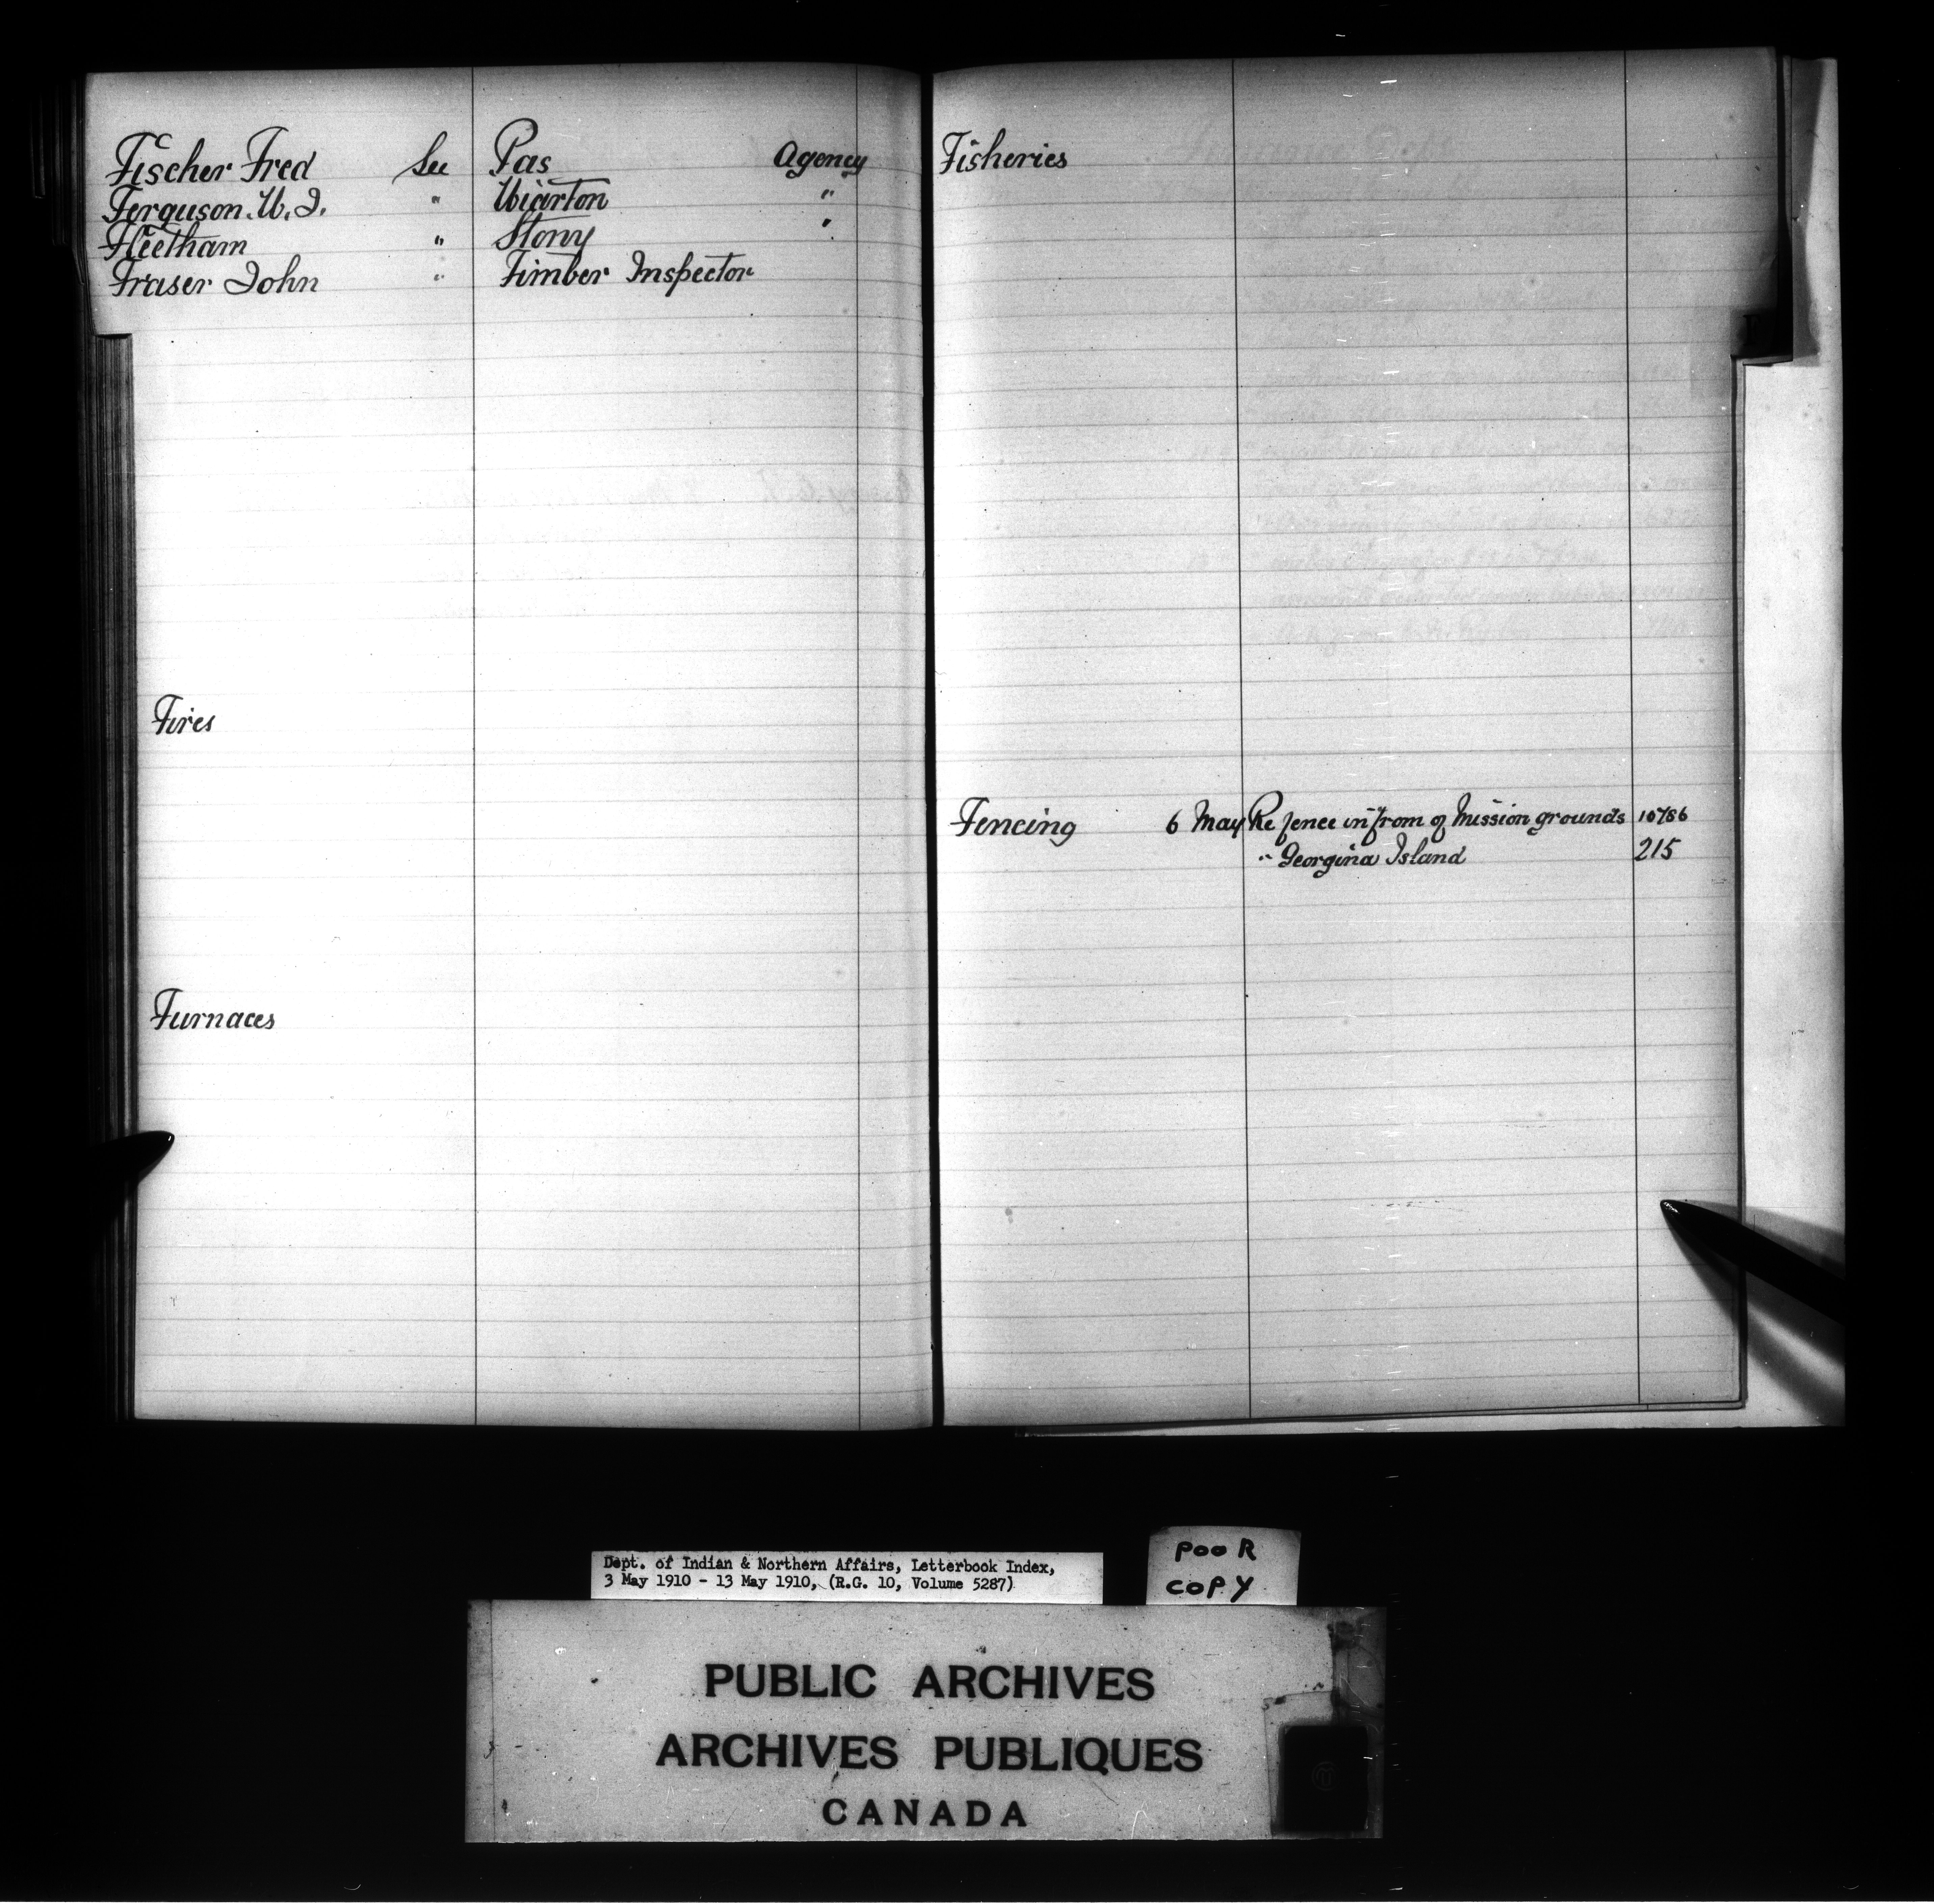 Fischer Fred See Pas Agency
Ferguson. W. J. " Wiarton "
Fleetham " Stony "
Fraser John " Timber Inspector
Fires
Furnaces
Fisheries
Fencing 6 May Re fence in from of Mission grounds 10786
" Georgina Island 215
Dept. of Indian & Northern Affairs, Letterbook Index,
3 May 1910 - 13 May 1910, (R.G. 10, Volume 5287)
POOR
COPY
PUBLIC ARCHIVES
ARCHIVES PUBLIQUES
CANADA